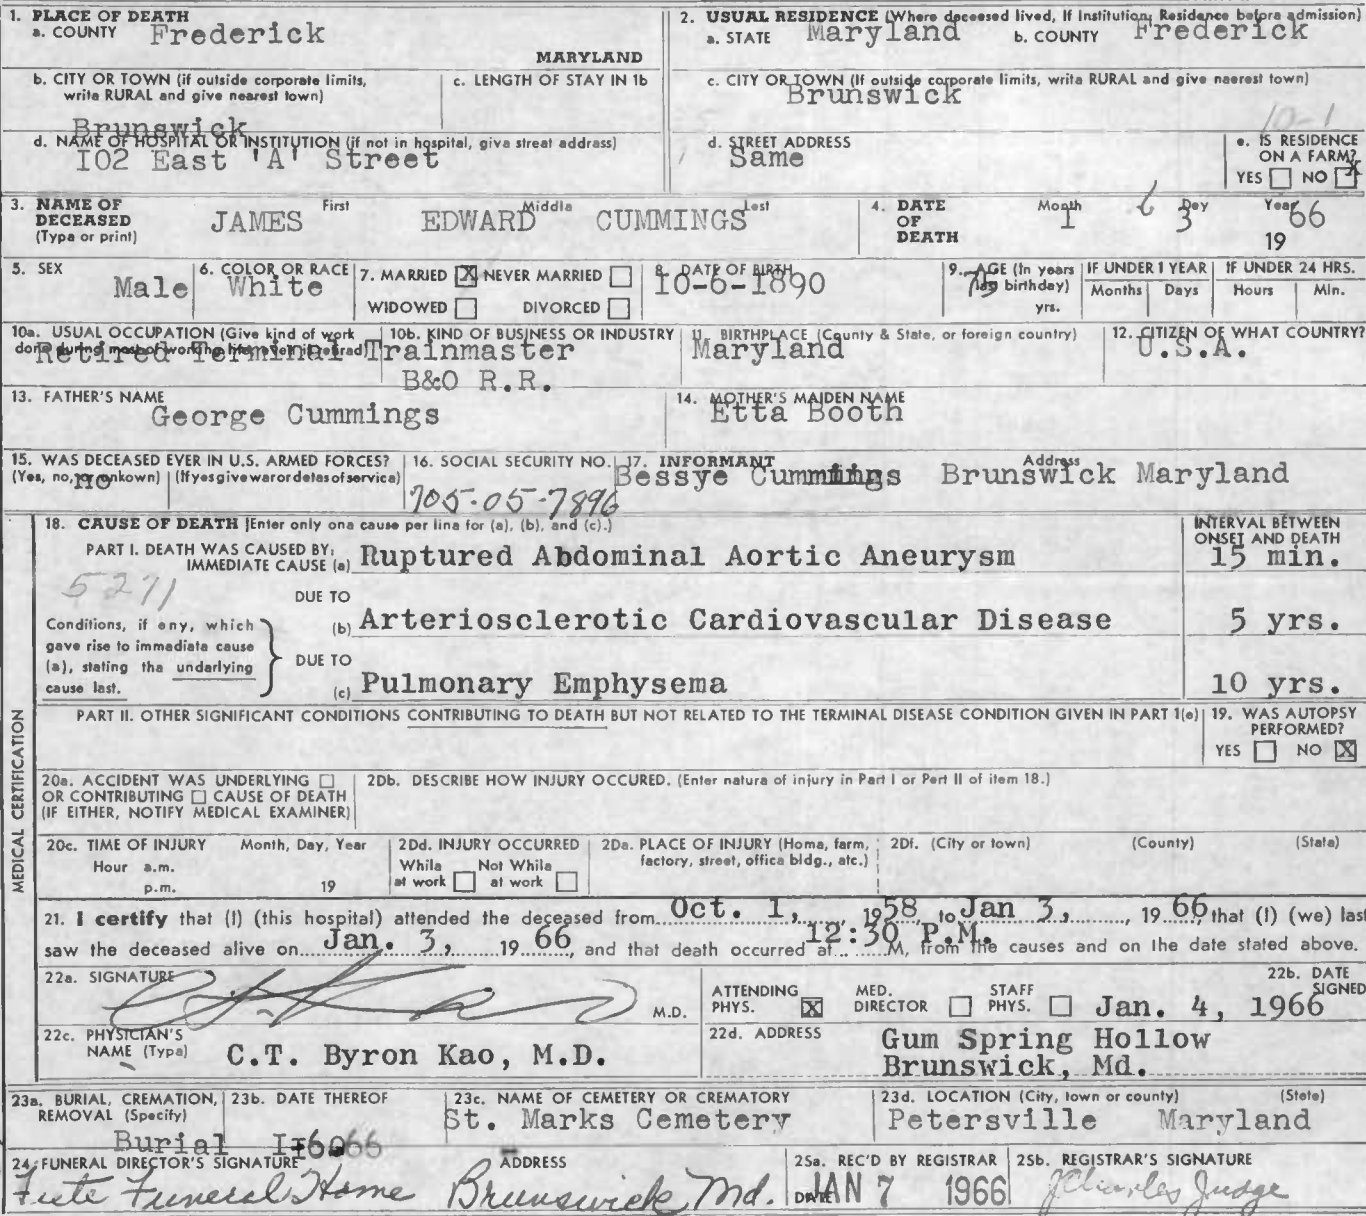 1. PLACE OF DEATH
a. COUNTY Frederick
MARYLAND
2. USUAL RESIDENCE (Where deceased lived, If Institution, Residence before admission)
a. STATE Maryland b. COUNTY Frederick
b. CITY OR TOWN (if outside corporate limits, write RURAL and give nearest town)
Brunswick
c. LENGTH OF STAY IN 1b
c. CITY OR TOWN (If outside corporate limits, write RURAL and give nearest town)
Brunswick
10-1
d. NAME OF HOSPITAL OR INSTITUTION (if not in hospital, give street address)
I02 East 'A' Street
d. STREET ADDRESS
Same
e. IS RESIDENCE ON A FARM?
YES NO X
3. NAME OF DECEASED (Type or print)
First Middle Last
JAMES EDWARD CUMMINGS
4. DATE OF DEATH
Month Day Year
1 6 3 66
19
5. SEX
Male
6. COLOR OR RACE
White
7. MARRIED X NEVER MARRIED
WIDOWED DIVORCED
8. DATE OF BIRTH
10-6-1890
9. AGE (In years last birthday)
75 yrs.
IF UNDER 1 YEAR
Months Days
IF UNDER 24 HRS.
Hours Min.
10a. USUAL OCCUPATION (Give kind of work done during most of working life, even if retired)
Retired Terminal Trainmaster
10b. KIND OF BUSINESS OR INDUSTRY
B&O R.R.
11. BIRTHPLACE (County & State, or foreign country)
Maryland
12. CITIZEN OF WHAT COUNTRY?
U.S.A.
13. FATHER'S NAME
George Cummings
14. MOTHER'S MAIDEN NAME
Etta Booth
15. WAS DECEASED EVER IN U.S. ARMED FORCES?
(Yes, no, or unkown) (If yes give war or dates of service)
no
16. SOCIAL SECURITY NO.
705-05-7896
17. INFORMANT Address
Bessye Cummings Brunswick Maryland
MEDICAL CERTIFICATION
18. CAUSE OF DEATH [Enter only one cause per line for (a), (b), and (c).]
INTERVAL BETWEEN ONSET AND DEATH
PART I. DEATH WAS CAUSED BY:
IMMEDIATE CAUSE (a) Ruptured Abdominal Aortic Aneurysm 15 min.
5271
DUE TO
(b) Arteriosclerotic Cardiovascular Disease 5 yrs.
Conditions, if any, which gave rise to immediate cause (a), stating the underlying cause last.
DUE TO
(c) Pulmonary Emphysema 10 yrs.
PART II. OTHER SIGNIFICANT CONDITIONS CONTRIBUTING TO DEATH BUT NOT RELATED TO THE TERMINAL DISEASE CONDITION GIVEN IN PART 1(a)
19. WAS AUTOPSY PERFORMED?
YES NO X
20a. ACCIDENT WAS UNDERLYING
OR CONTRIBUTING CAUSE OF DEATH
(IF EITHER, NOTIFY MEDICAL EXAMINER)
20b. DESCRIBE HOW INJURY OCCURED. (Enter nature of injury in Part I or Part II of item 18.)
20c. TIME OF INJURY Month, Day, Year
Hour a.m.
p.m. 19
20d. INJURY OCCURRED
While at work Not While at work
20e. PLACE OF INJURY (Home, farm, factory, street, office bldg., etc.)
20f. (City or town) (County) (State)
21. I certify that (I) (this hospital) attended the deceased from Oct. 1, 1958, to Jan 3, 1966, that (I) (we) last
saw the deceased alive on Jan. 3, 1966, and that death occurred at 12:30 P.M. M, from the causes and on the date stated above.
22a. SIGNATURE
M.D.
ATTENDING PHYS. X MED. DIRECTOR STAFF PHYS.
22b. DATE SIGNED
Jan. 4, 1966
22c. PHYSICIAN'S NAME (Type) C.T. Byron Kao, M.D.
22d. ADDRESS
Gum Spring Hollow
Brunswick, Md.
23a. BURIAL, CREMATION, REMOVAL (Specify)
Burial
23b. DATE THEREOF
I-6-66
23c. NAME OF CEMETERY OR CREMATORY
St. Marks Cemetery
23d. LOCATION (City, town or county) (State)
Petersville Maryland
24. FUNERAL DIRECTOR'S SIGNATURE ADDRESS
Feete Funeral Home Brunswick Md.
25a. REC'D BY REGISTRAR
DATE JAN 7 1966
25b. REGISTRAR'S SIGNATURE
J Charles Judge